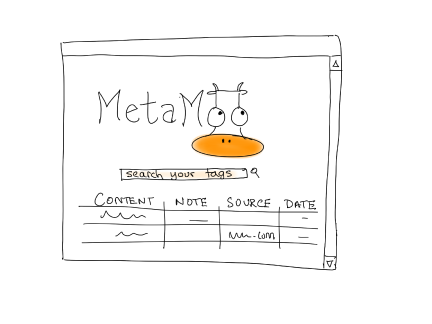 MetaMoo
search your tags
CONTENT NOTE SOURCE DATE
.com